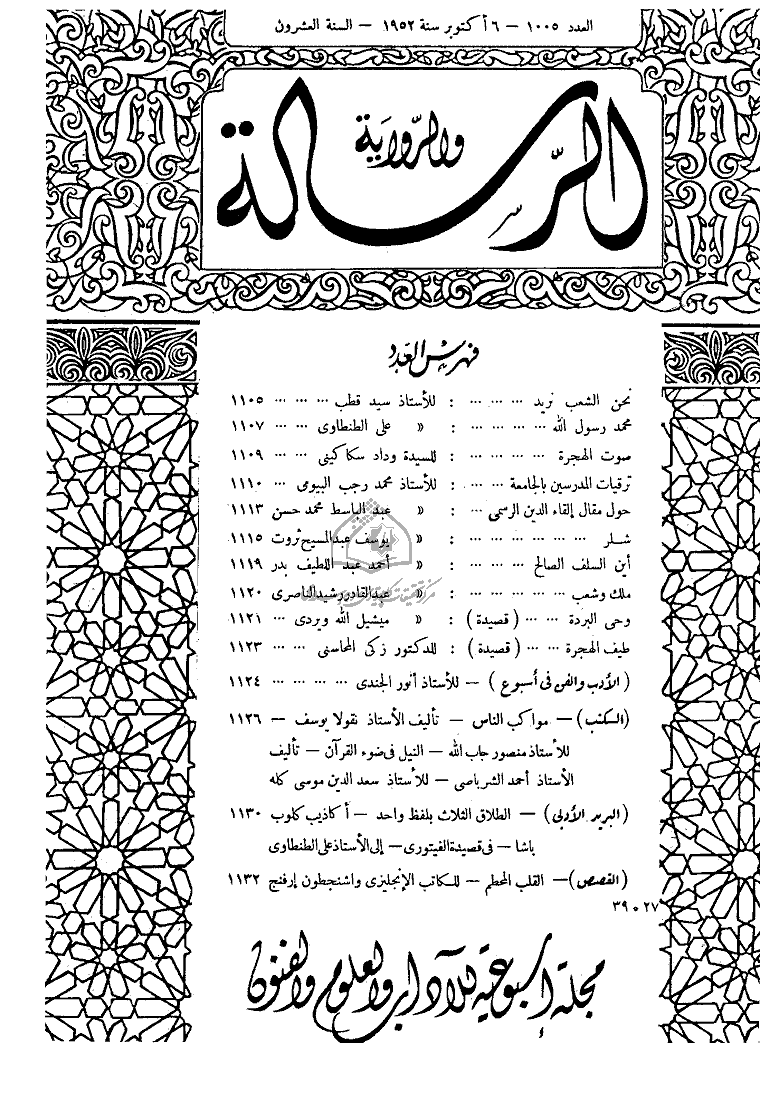 العدد ١٠٠٥ — ٦ أكتوبر سنة ١٩٥٢ — السنة العشرون
الرسالة
والرواية
فهرس العدد
نحن الشعب نريد ... ... ... : للأستاذ سيد قطب ... ... ... ١١٠٥
محمد رسول الله ... ... ... ... : « على الطنطاوى ... ... ١١٠٧
صوت الهجرة ... ... ... ... : للسيدة وداد سكاكينى ... ... ١١٠٩
ترقيات المدرسين بالجامعة ... ... : للأستاذ محمد رجب البيومى ... ١١١٠
حول مقال إلقاء الدين الرسمى ... : « عبد الباسط محمد حسن ١١١٣
شلر ... ... ... ... ... ... : « يوسف عبد المسيح ثروت ١١١٥
أين السلف الصالح ... ... ... ... : « أحمد عبد اللطيف بدر ١١١٩
ملك وشعب ... ... ... ... ... : « عبد القادر رشيد الناصرى ١١٢٠
وحى البردة ... ... ( قصيدة ) : « ميشيل الله ويردى ... ١١٢١
طيف الهجرة ... ... ( قصيدة ) : للدكتور زكى المحاسنى ... ... ١١٢٣
( الأدب والفن فى أسبوع ) — للأستاذ أنور الجندى ... ... ... ... ١١٢٤
( الكتب ) — مواكب الناس — تأليف الأستاذ نقولا يوسف — ١١٢٦
للأستاذ منصور جاب الله — النيل فى ضوء القرآن — تأليف
الأستاذ أحمد الشرباصى — للأستاذ سعد الدين موسى كله
( البريد الأدبى ) — الطلاق الثلاث بلفظ واحد — أكاذيب كلوب ١١٣٠
باشا — فى قصيدة الفيتورى — إلى الأستاذ على الطنطاوى
( القصص ) — القلب المحطم — للكاتب الإنجليزى واشنجطون إرفنج ١١٣٢
٢٧ ٥ ٣٩
مجلة أسبوعية للآداب والعلوم والفنون